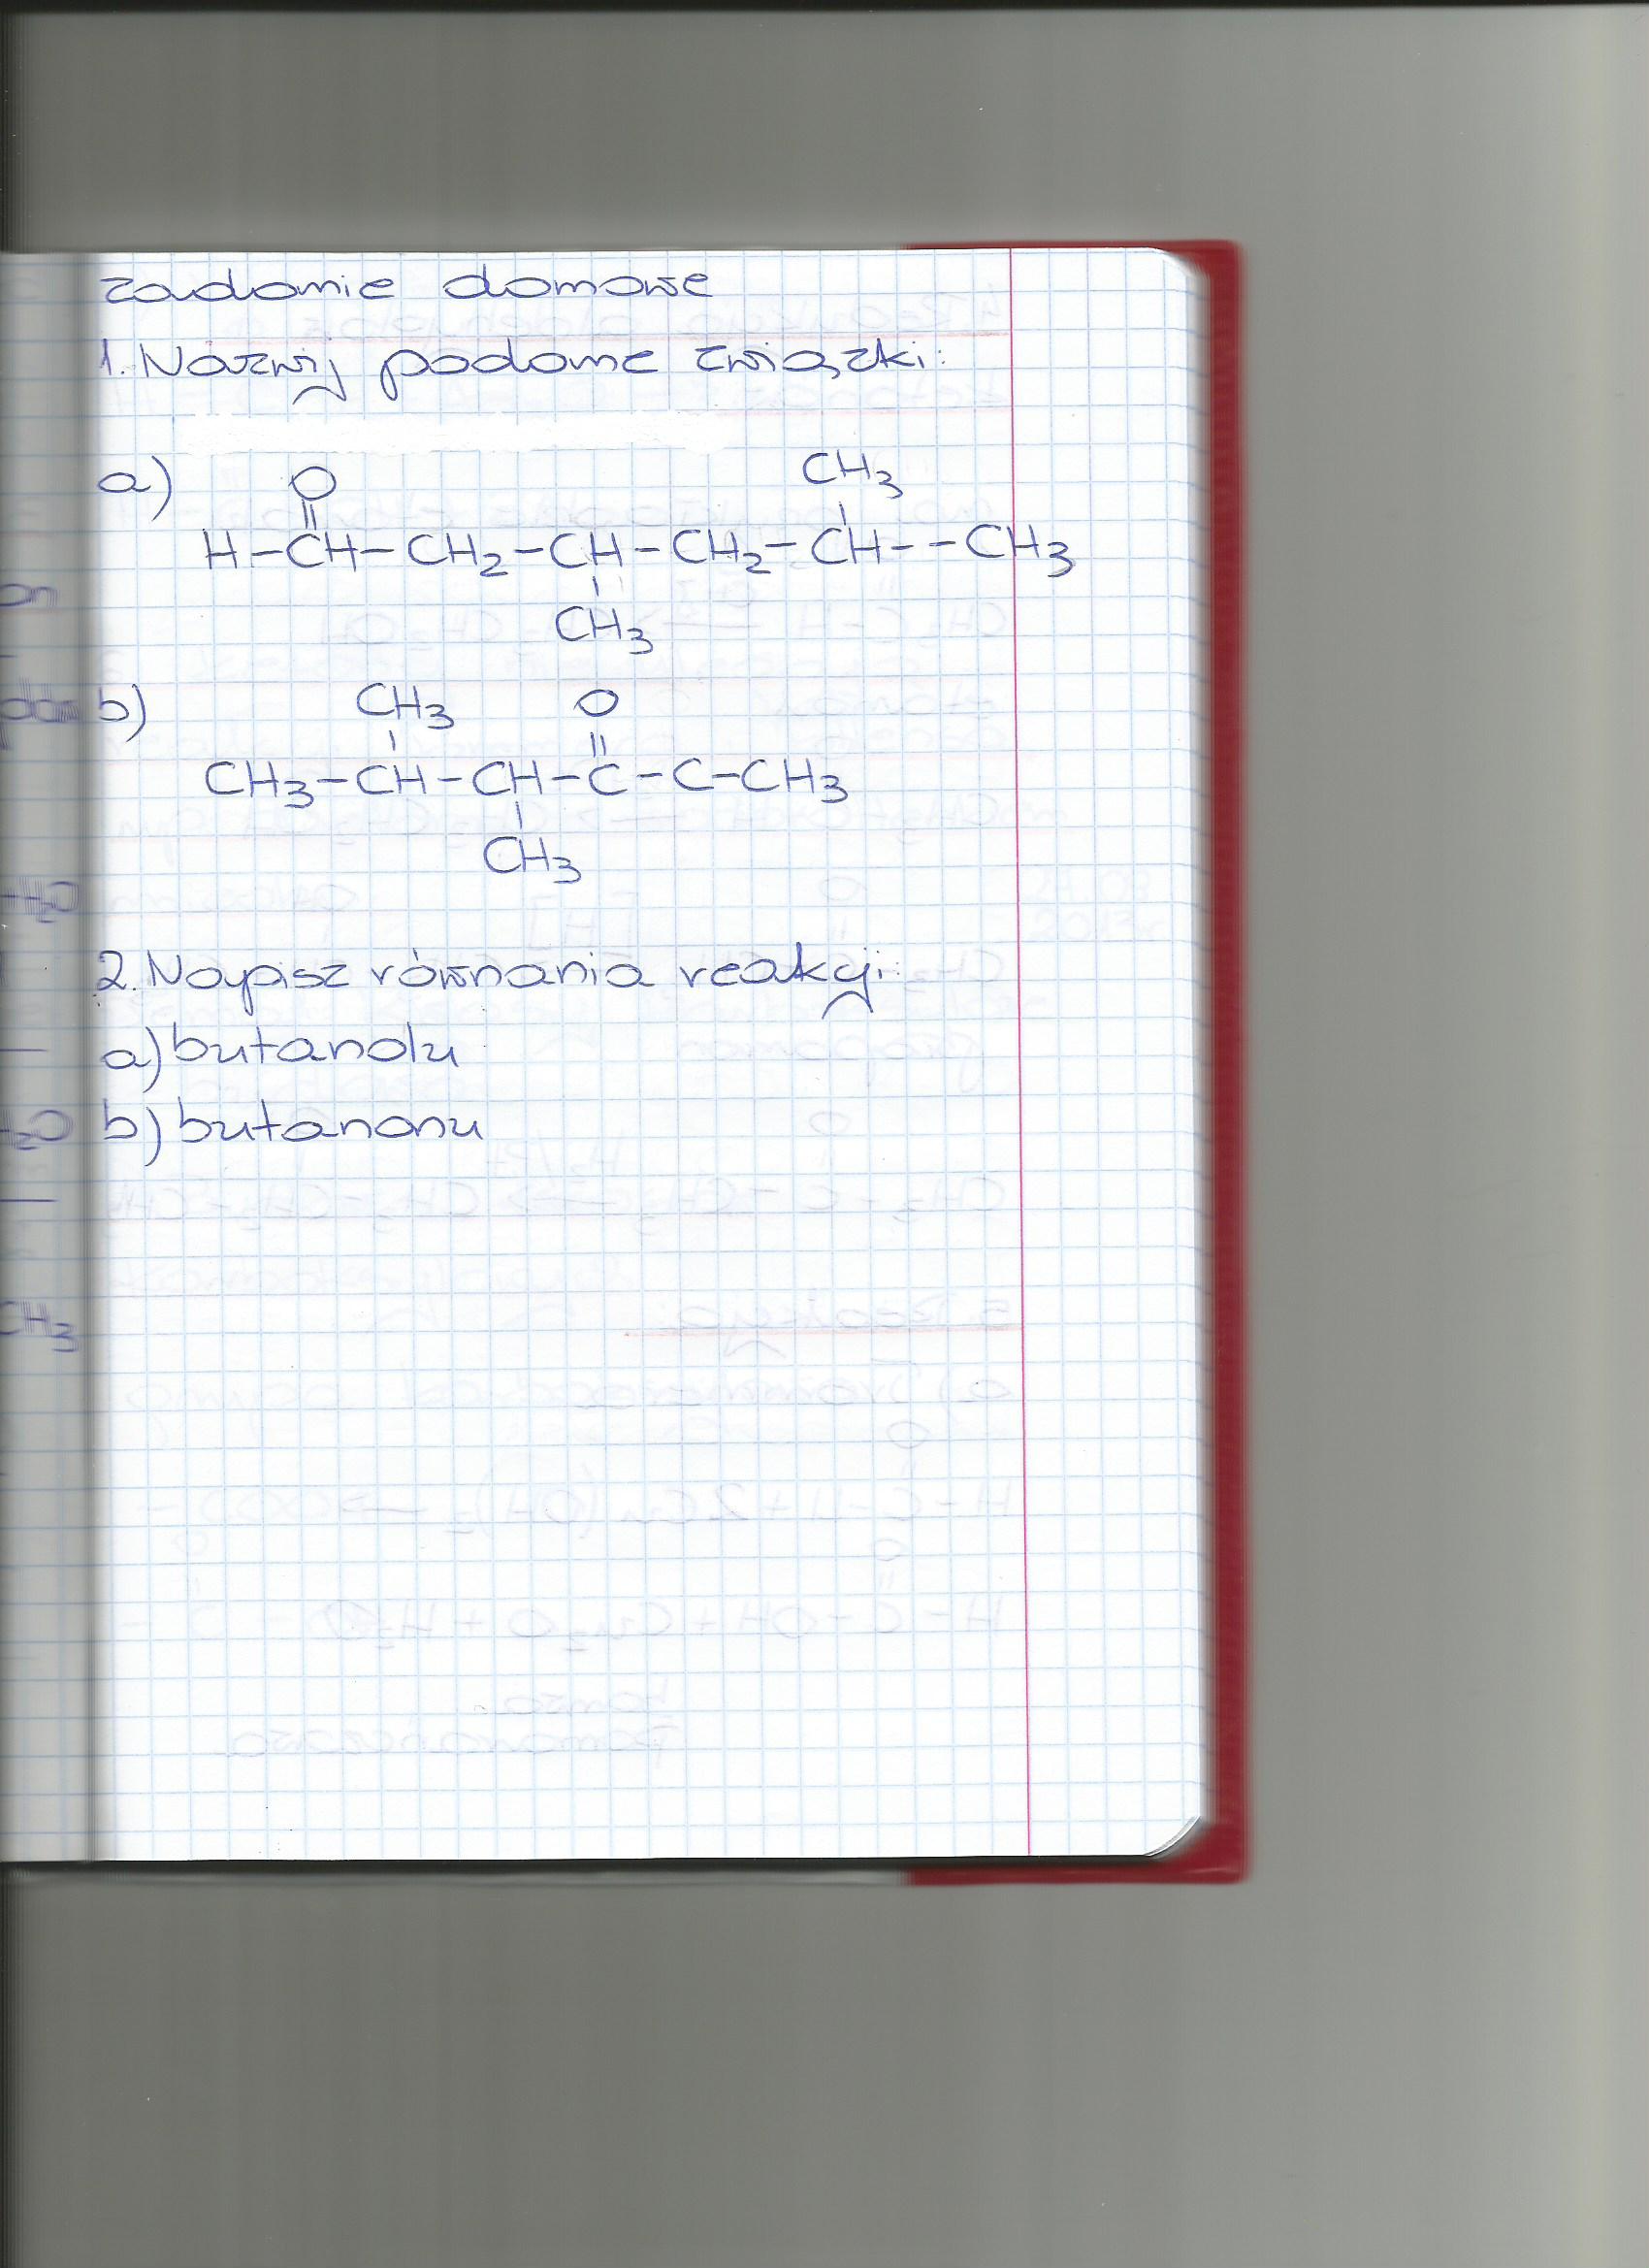 zadanie domowe
1. Nazwij podane związki:
a) O CH3
H-CH-CH2-CH-CH2-CH--CH3
CH3
b) CH3 O
CH3-CH-CH-C-C-CH3
CH3
2. Napisz równania reakcji:
a) butanolu
b) butanonu
CH3